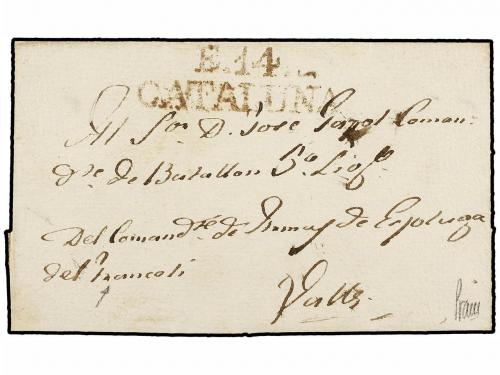 B.14.
CATALUÑA
Al Sor. D. Jose Coman-
dte. de Batallon 5o.
Del Comandte. de Armas de Espluga
del Francoli
Valls.